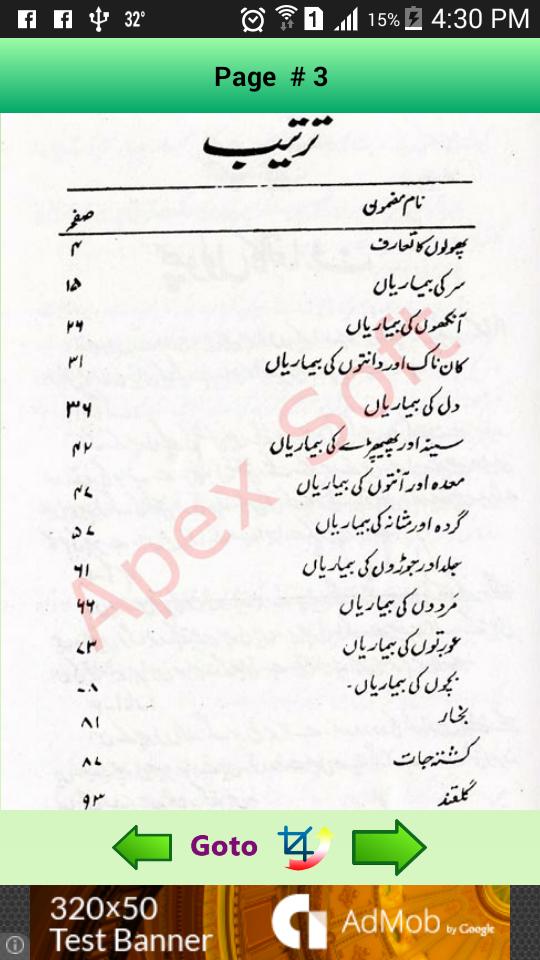 32° 1 15% 4:30 PM
Page # 3
ترتیب
نام مضمون صفحہ
پھولوں کا تعارف ۴
سر کی بیماریاں ۱۵
آنکھوں کی بیماریاں ۲۶
کان ناک اور دانتوں کی بیماریاں ۳۱
دل کی بیماریاں ۳۶
سینہ اور پھیپھڑے کی بیماریاں ۴۲
معدہ اور آنتوں کی بیماریاں ۴۷
گردہ اور مثانہ کی بیماریاں ۵۷
جلد اور جوڑوں کی بیماریاں ۶۱
مردوں کی بیماریاں ۶۶
عورتوں کی بیماریاں ۷۳
بچوں کی بیماریاں۔
بخار ۸۱
کشتہ جات ۸۷
گلقند ۹۳
Apex Soft
Goto
320x50
Test Banner
AdMob by Google